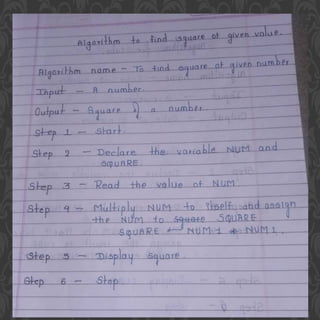 Algorithm to find square of given value.
Algorithm name - To find square of given number
Input - A number
Output - Square of a number
Step 1 - Start.
Step 2 - Declare the variable NUM and
SQUARE.
Step 3 - Read the value of NUM.
Step 4 - Multiply NUM to itself and assign
the NUM to square SQUARE
SQUARE ← NUM 1 * NUM 1.
Step 5 - Display square.
Step 6 - Stop